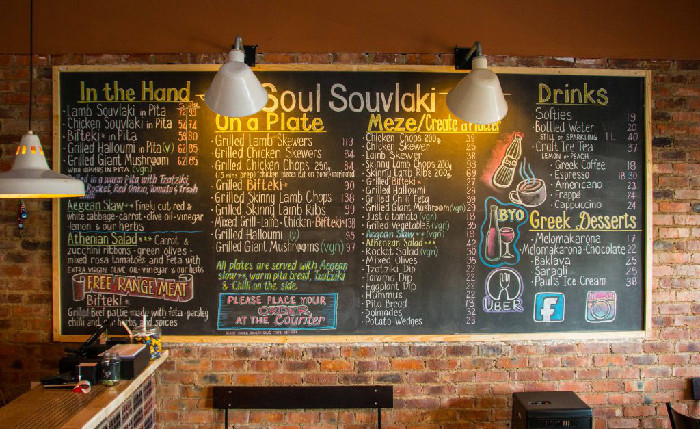 Soul Souvlaki
In the Hand
Lamb Souvlaki in Pita
Chicken Souvlaki in Pita
Bifteki* in Pita
Grilled Halloumi in Pita (v)
Grilled Giant Mushroom
in a warm Pita with Tzatziki,
Rocket, Red Onion, Tomato & Fresh
Aegean Slaw finely cut red &
white cabbage · carrot · olive oil · vinegar
lemon & our herbs
Athenian Salad Carrot &
zucchini ribbons · green olives
mixed rosa tomatoes and feta with
extra virgin olive oil · vinegar & our herbs
FREE RANGE MEAT
Bifteki*
Grilled Beef pattie made with feta · parsley
chilli and our herbs and spices
On a Plate
Grilled Lamb Skewers 113
Grilled Chicken Skewers 94
Grilled Chicken Chops 250g 84
Grilled Bifteki* 90
Grilled Skinny Lamb Chops 138
Grilled Skinny Lamb Ribs 99
Mixed Grill · Lamb · Chicken · Bifteki
Grilled Halloumi (v) 95
Grilled Giant Mushrooms (vgn)
All plates are served with Aegean
slaw, warm pita bread, Tzatziki
& Chilli on the side
PLEASE PLACE YOUR
ORDER
AT THE Counter
Meze/Create a Platter
Chicken Chops 200g
Chicken Skewer
Lamb Skewer
Skinny Lamb Chops
Skinny Lamb Ribs 200g
Grilled Bifteki
Grilled Halloumi
Grilled Chilli Feta
Grilled Giant Mushroom (vgn)
Just a tomato (vgn)
Grilled Vegetables (vgn)
Aegean Slaw (vgn)
Athenian Salad
Rocket Salad (vgn)
Mixed Olives
Tzatziki Dip
Tarama Dip
Eggplant Dip
Hummus
Pita Bread
Dolmades
Potato Wedges
Drinks
Softies 19
Bottled Water 20
STILL or SPARKLING 1L 40
Fruit Ice Tea 25
LEMON or PEACH
Greek Coffee 18
Espresso 18 | 30
Americano 23
Frappé 24
Cappuccino 24
BYO
Greek Desserts
Melomakarona 17
Melomakarona · Chocolate 22
Baklava 25
Saragli 25
Paul's Ice Cream 38
UBER
f